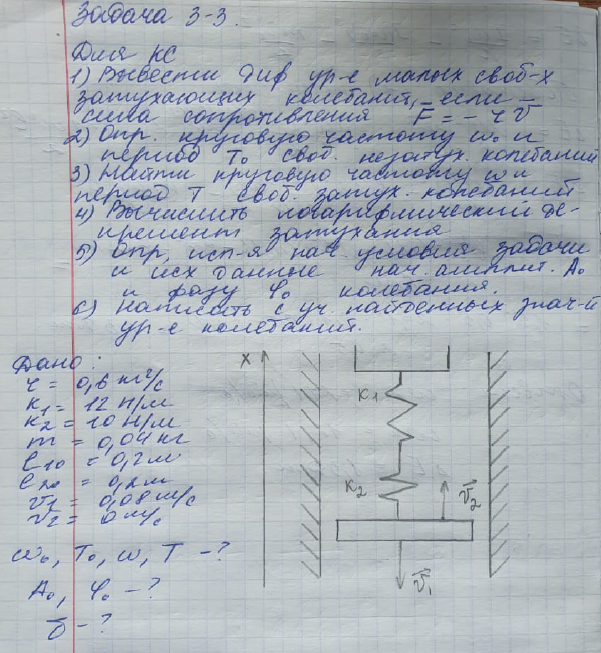 Задача 3-3.
Для КС
1) Вывести диф ур-е малых своб-х
затухающих колебаний, если
сила сопротивления F̅ = - r v̅
2) Опр. круговую частоту ω₀ и
период T₀ своб. незатух. колебаний
3) Найти круговую частоту ω и
период T своб. затух. колебаний
4) Вычислить логарифмический де-
кремент затухания
5) Опр, исп-я нач. условия задачи
и исх данные нач. амплит. A₀
и фазу φ₀ колебания.
6) Написать с уч. найденных знач-й
ур-е колебаний.
Дано:
r = 0,6 кг/с
K₁ = 12 Н/м
K₂ = 10 Н/м
m = 0,04 кг
ℓ₁₀ = 0,2 м
ℓ₂₀ = 0,2 м
v₁ = 0,08 м/с
v₂ = 0 м/с
ω₀, T₀, ω, T - ?
A₀, φ₀ - ?
δ - ?
X
K₁
K₂
v⃗₂
v⃗₁